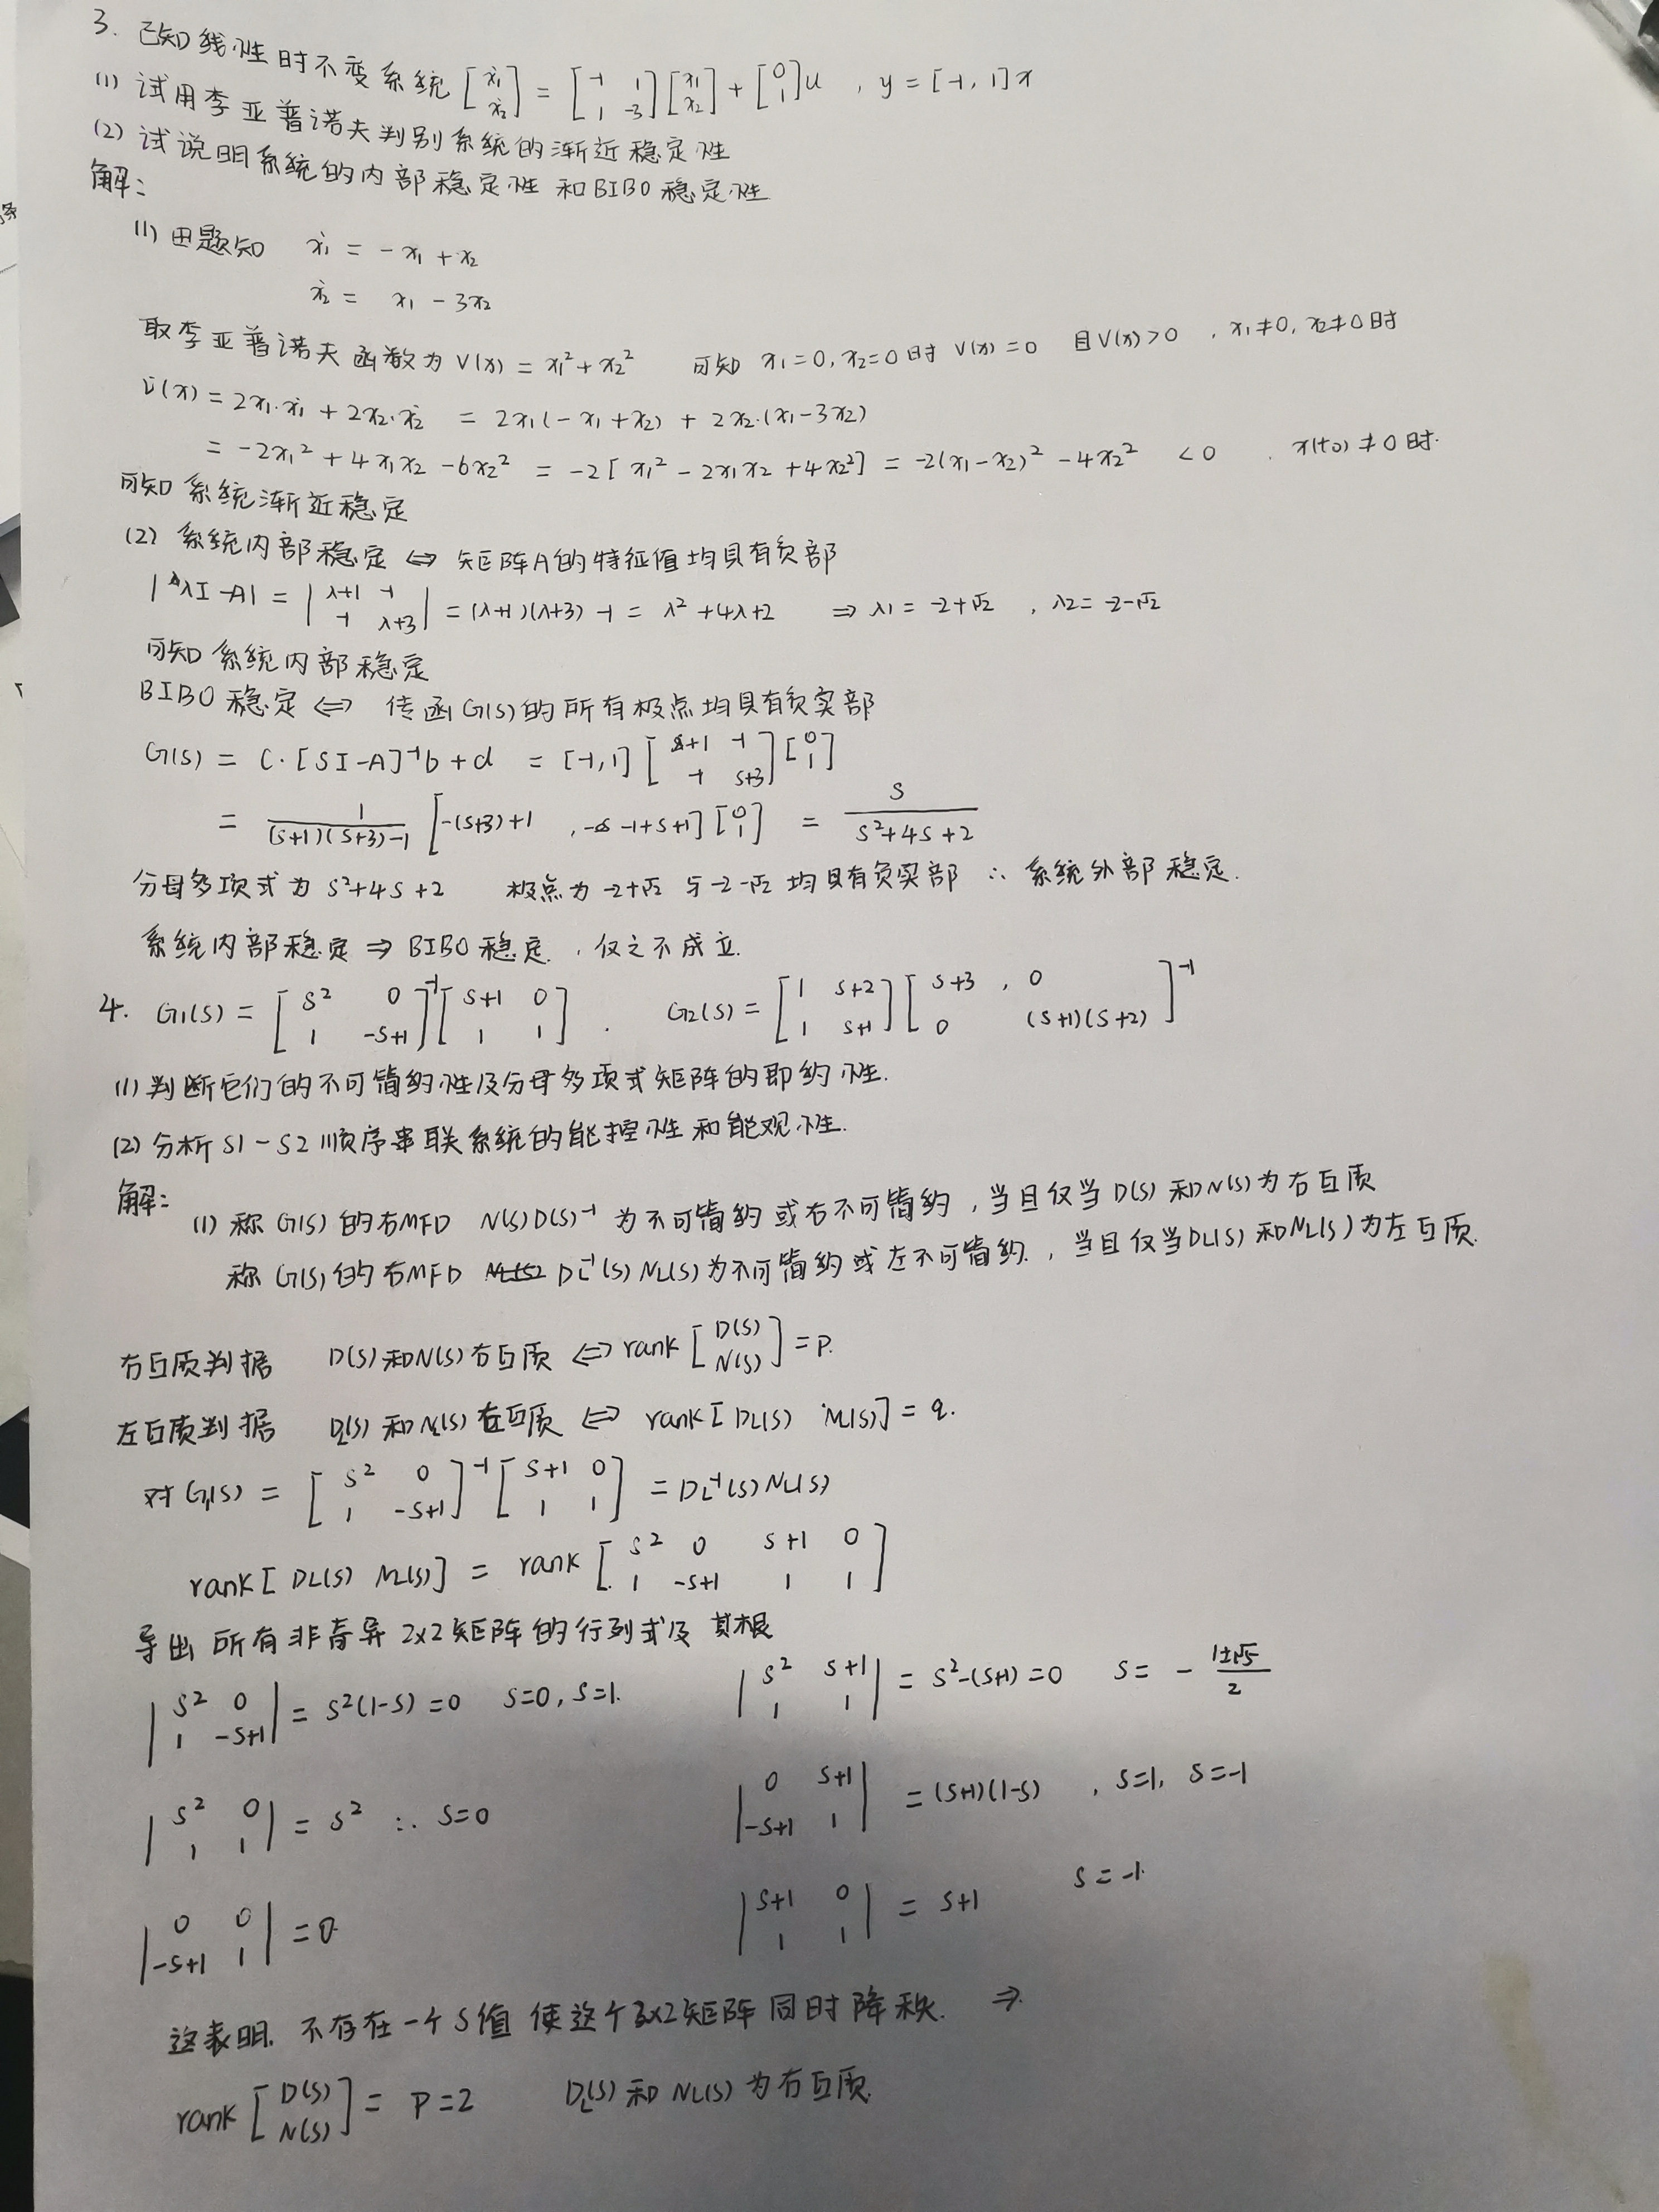 3. 已知线性时不变系统 [ẋ1 ẋ2] = [-1 1 1 -3][x1 x2] + [0 1]u , y = [-1, 1]x
(1) 试用李亚普诺夫判别系统的渐近稳定性
(2) 试说明系统的内部稳定性和BIBO稳定性
解:
(1) 由题知 ẋ1 = -x1 + x2
ẋ2 = x1 - 3x2
取李亚普诺夫函数为 V(x) = x1² + x2² 可知 x1=0, x2=0时 V(x)=0 且V(x)>0 , x1≠0, x2≠0时
V̇(x) = 2x1·ẋ1 + 2x2·ẋ2 = 2x1(-x1+x2) + 2x2·(x1-3x2)
= -2x1² + 4x1x2 - 6x2² = -2[x1² - 2x1x2 + 4x2²] = -2(x1-x2)² - 4x2² < 0 . x(t0)≠0时.
可知系统渐近稳定
(2) 系统内部稳定 ⇔ 矩阵A的特征值均具有负部
|λI-A| = |λ+1 -1 -1 λ+3| = (λ+1)(λ+3)-1 = λ²+4λ+2 ⇒ λ1 = -2+√2 , λ2 = -2-√2
可知系统内部稳定
BIBO稳定 ⇔ 传函G(s)的所有极点均具有负实部
G(s) = C·[SI-A]⁻¹b+d = [-1,1][s+1 -1 -1 s+3][0 1]
= 1/((s+1)(s+3)-1) [-(s+3)+1 , -1+s+1][0 1] = s/(s²+4s+2)
分母多项式为 s²+4s+2 极点为 -2+√2 与 -2-√2 均具有负实部 ∴ 系统外部稳定.
系统内部稳定 ⇒ BIBO稳定. , 仅之不成立.
4. G1(s) = [s² 0 1 -s+1]⁻¹[s+1 0 1 1] . G2(s) = [1 s+2 1 s+1][s+3 , 0 0 (s+1)(s+2)]⁻¹
(1) 判断它们的不可简约性及分母多项式矩阵的即约性.
(2) 分析 S1-S2 顺序串联系统的能控性和能观性.
解: (1) 称 G(s) 的右MFD N(s)D(s)⁻¹ 为不可简约或右不可简约, 当且仅当 D(s) 和 N(s) 为右互质
称 G(s) 的右MFD DL⁻¹(s)NL(s) 为不可简约或左不可简约. , 当且仅当DL(s) 和NL(s) 为左互质.
右互质判据 D(s)和N(s)右互质 ⇔ rank[D(s) N(s)] = p.
左互质判据 DL(s)和NL(s)左互质 ⇔ rank[DL(s) NL(s)] = q.
对G1(s) = [s² 0 1 -s+1]⁻¹[s+1 0 1 1] = DL⁻¹(s)NL(s)
rank[DL(s) NL(s)] = rank[s² 0 s+1 0 1 -s+1 1 1]
导出所有非奇异2x2矩阵的行列式及其根
|s² 0 1 -s+1| = s²(1-s)=0 s=0, s=1. |s² s+1 1 1| = s²-(s+1)=0 s= -(1±√5)/2
|s² 0 1 1| = s² ∴ s=0 |0 s+1 -s+1 1| = (s+1)(1-s) , s=1, s=-1
|0 0 -s+1 1| = 0 |s+1 0 1 1| = s+1 s=-1.
这表明. 不存在一个S值使这个3x2矩阵同时降秩. ⇒
rank[D(s) N(s)] = p=2 DL(s)和NL(s)为右互质.